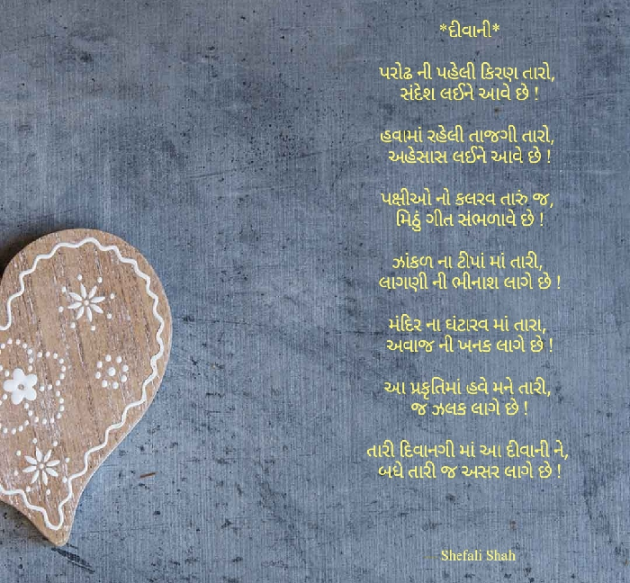 *દીવાની*
પરોઢ ની પહેલી કિરણ તારો,
સંદેશ લઈને આવે છે !
હવામાં રહેલી તાજગી તારો,
અહેસાસ લઈને આવે છે !
પક્ષીઓ નો કલરવ તારું જ,
મિઠું ગીત સંભળાવે છે !
ઝાંકળ ના ટીપાં માં તારી,
લાગણી ની ભીનાશ લાગે છે !
મંદિર ના ઘંટારવ માં તારા,
અવાજ ની ખનક લાગે છે !
આ પ્રકૃતિમાં હવે મને તારી,
જ ઝલક લાગે છે !
તારી દિવાનગી માં આ દીવાની ને,
બધે તારી જ અસર લાગે છે !
Shefali Shah